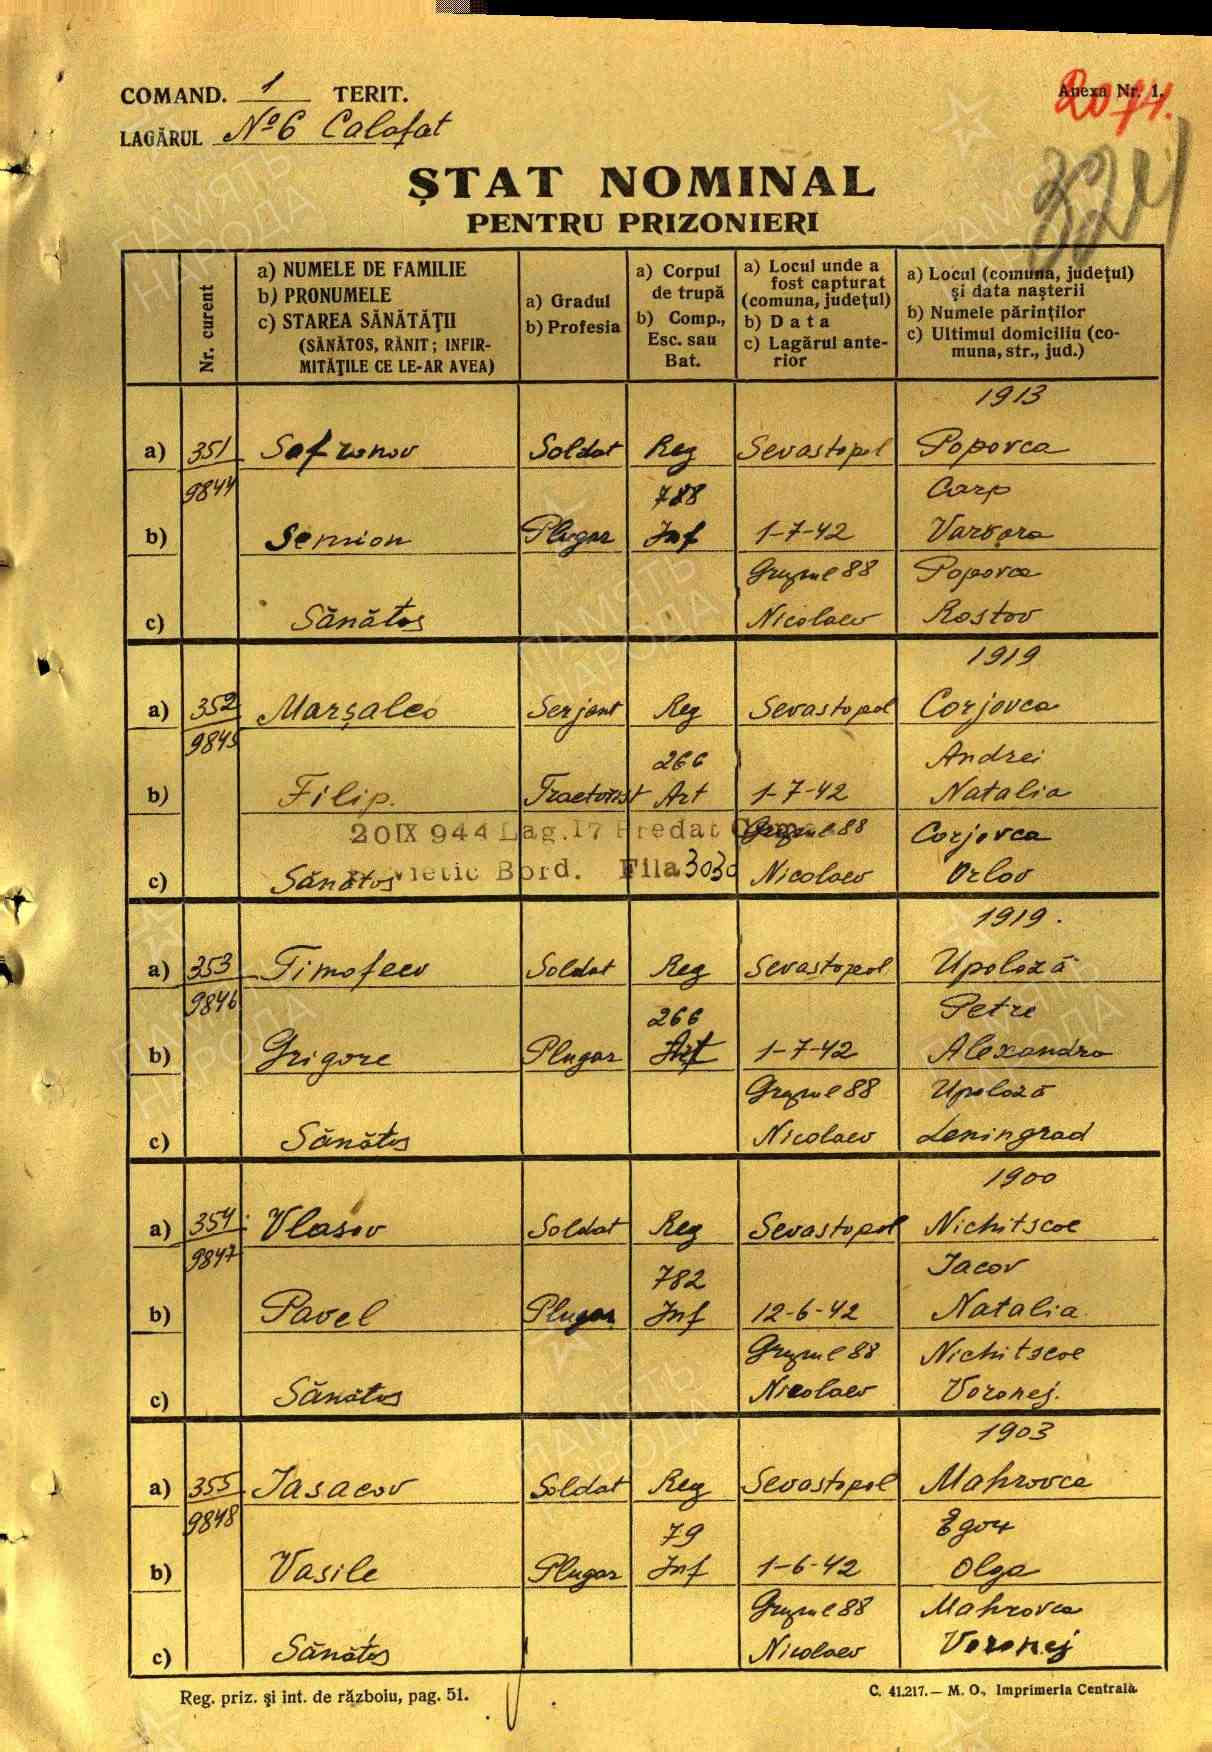 COMAND. 1 TERIT.
Anexa Nr. 1.
2074.
LAGĂRUL Nº 6 Calafat
324
ȘTAT NOMINAL
PENTRU PRIZONIERI
Nr. curent
a) NUMELE DE FAMILIE
b) PRONUMELE
c) STAREA SĂNĂTĂȚII
(SĂNĂTOS, RĂNIT; INFIR-
MITĂȚILE CE LE-AR AVEA)
a) Gradul
b) Profesia
a) Corpul
de trupă
b) Comp.,
Esc. sau
Bat.
a) Locul unde a
fost capturat
(comuna, județul)
b) Data
c) Lagărul ante-
rior
a) Locul (comuna, județul)
și data nașterii
b) Numele părinților
c) Ultimul domiciliu (co-
muna, str., jud.)
1913
a) 351 Safronov Soldat Reg Sevastopol Popovca
9844 788 Carp
b) Semion Plugar Inf 1-7-42 Varvara
Grupul 88 Popovca
c) Sănătos Nicolaev Rostov
1919
a) 352 Marșaleo Serjent Reg Sevastopol Corjovca
9845 266 Andrei
b) Filip. Tractorist Art 1-7-42 Natalia
20 IX 944 Lag. 17 Predat Grupul 88 Corjovca
c) Sănătos Bord. Fila 3030 Nicolaev Orlov
1919.
a) 353 Timofeev Soldat Reg Sevastopol Upoloză
9846 266 Petre
b) Grigore Plugar Art 1-7-42 Alexandra
Grupul 88 Upoloză
c) Sănătos Nicolaev Leningrad
1900
a) 354 Vlasov Soldat Reg Sevastopol Nichitscoe
9847 782 Iacov
b) Pavel Plugar Inf 12-6-42 Natalia
Grupul 88 Nichitscoe
c) Sănătos Nicolaev Voronej.
1903
a) 355 Iasacov Soldat Reg Sevastopol Mahrovca
9848 79 Egor
b) Vasile Plugar Inf 1-6-42 Olga
Grupul 88 Mahrovca
c) Sănătos Nicolaev Voronej
Reg. priz. și int. de războiu, pag. 51.
C. 41.217. — M. O., Imprimeria Centrală.
ПАМЯТЬ
НАРОДА